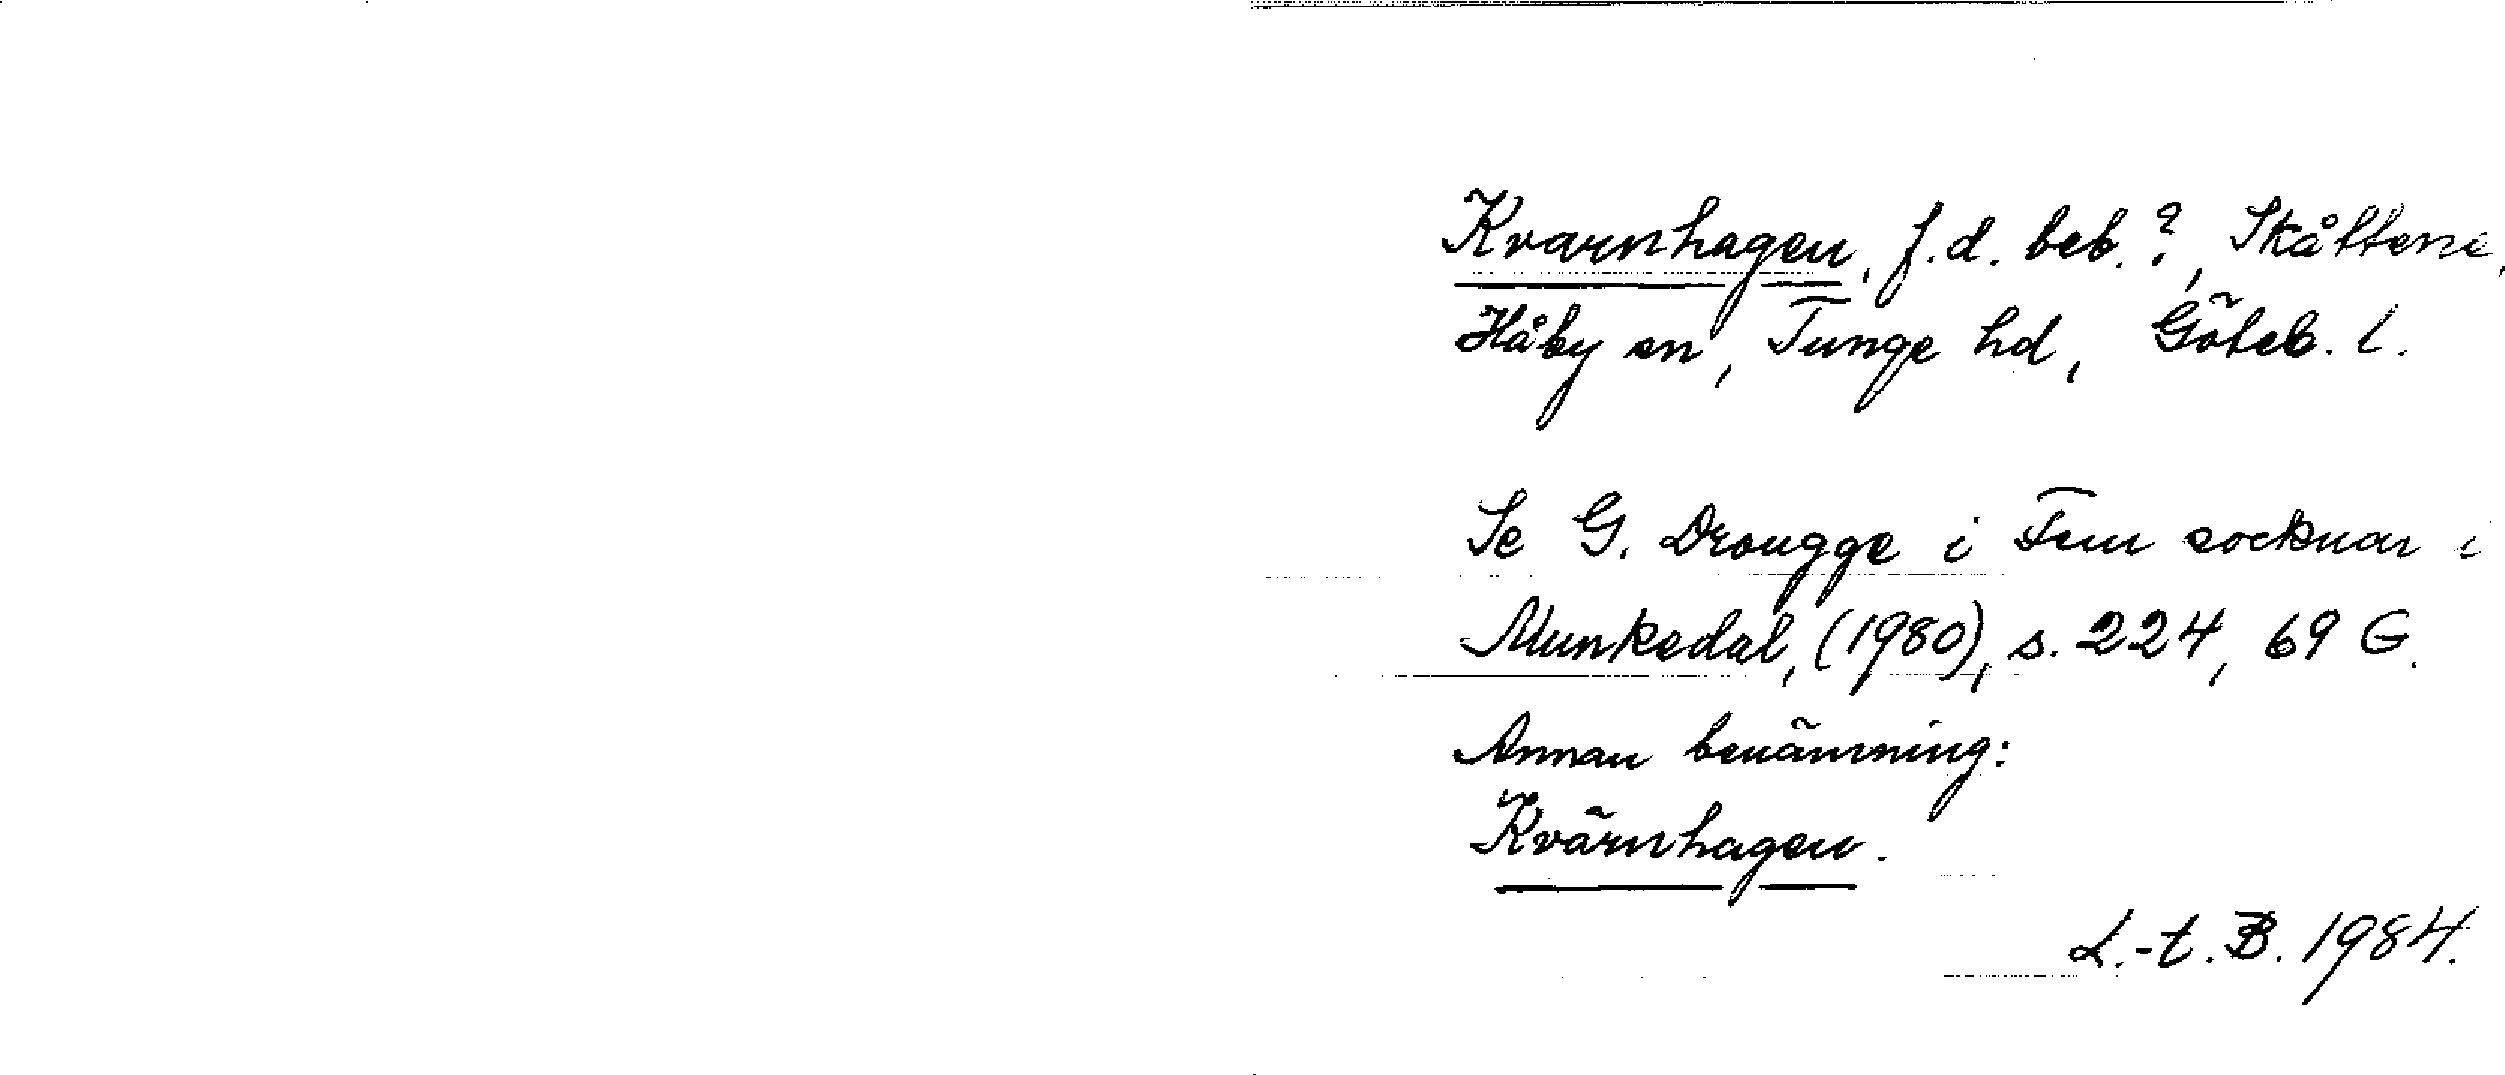 Kvarnhagen, f.d. beb.?, Skåttene,
Håby sn, Tunge hd, Göteb. l.
Se G. Drougge i Fem socknar i
Munkedal, (1980), s. 224, 69 G.
Annan benämning:
Kvärnhagen.
L.-t. B. 1984.